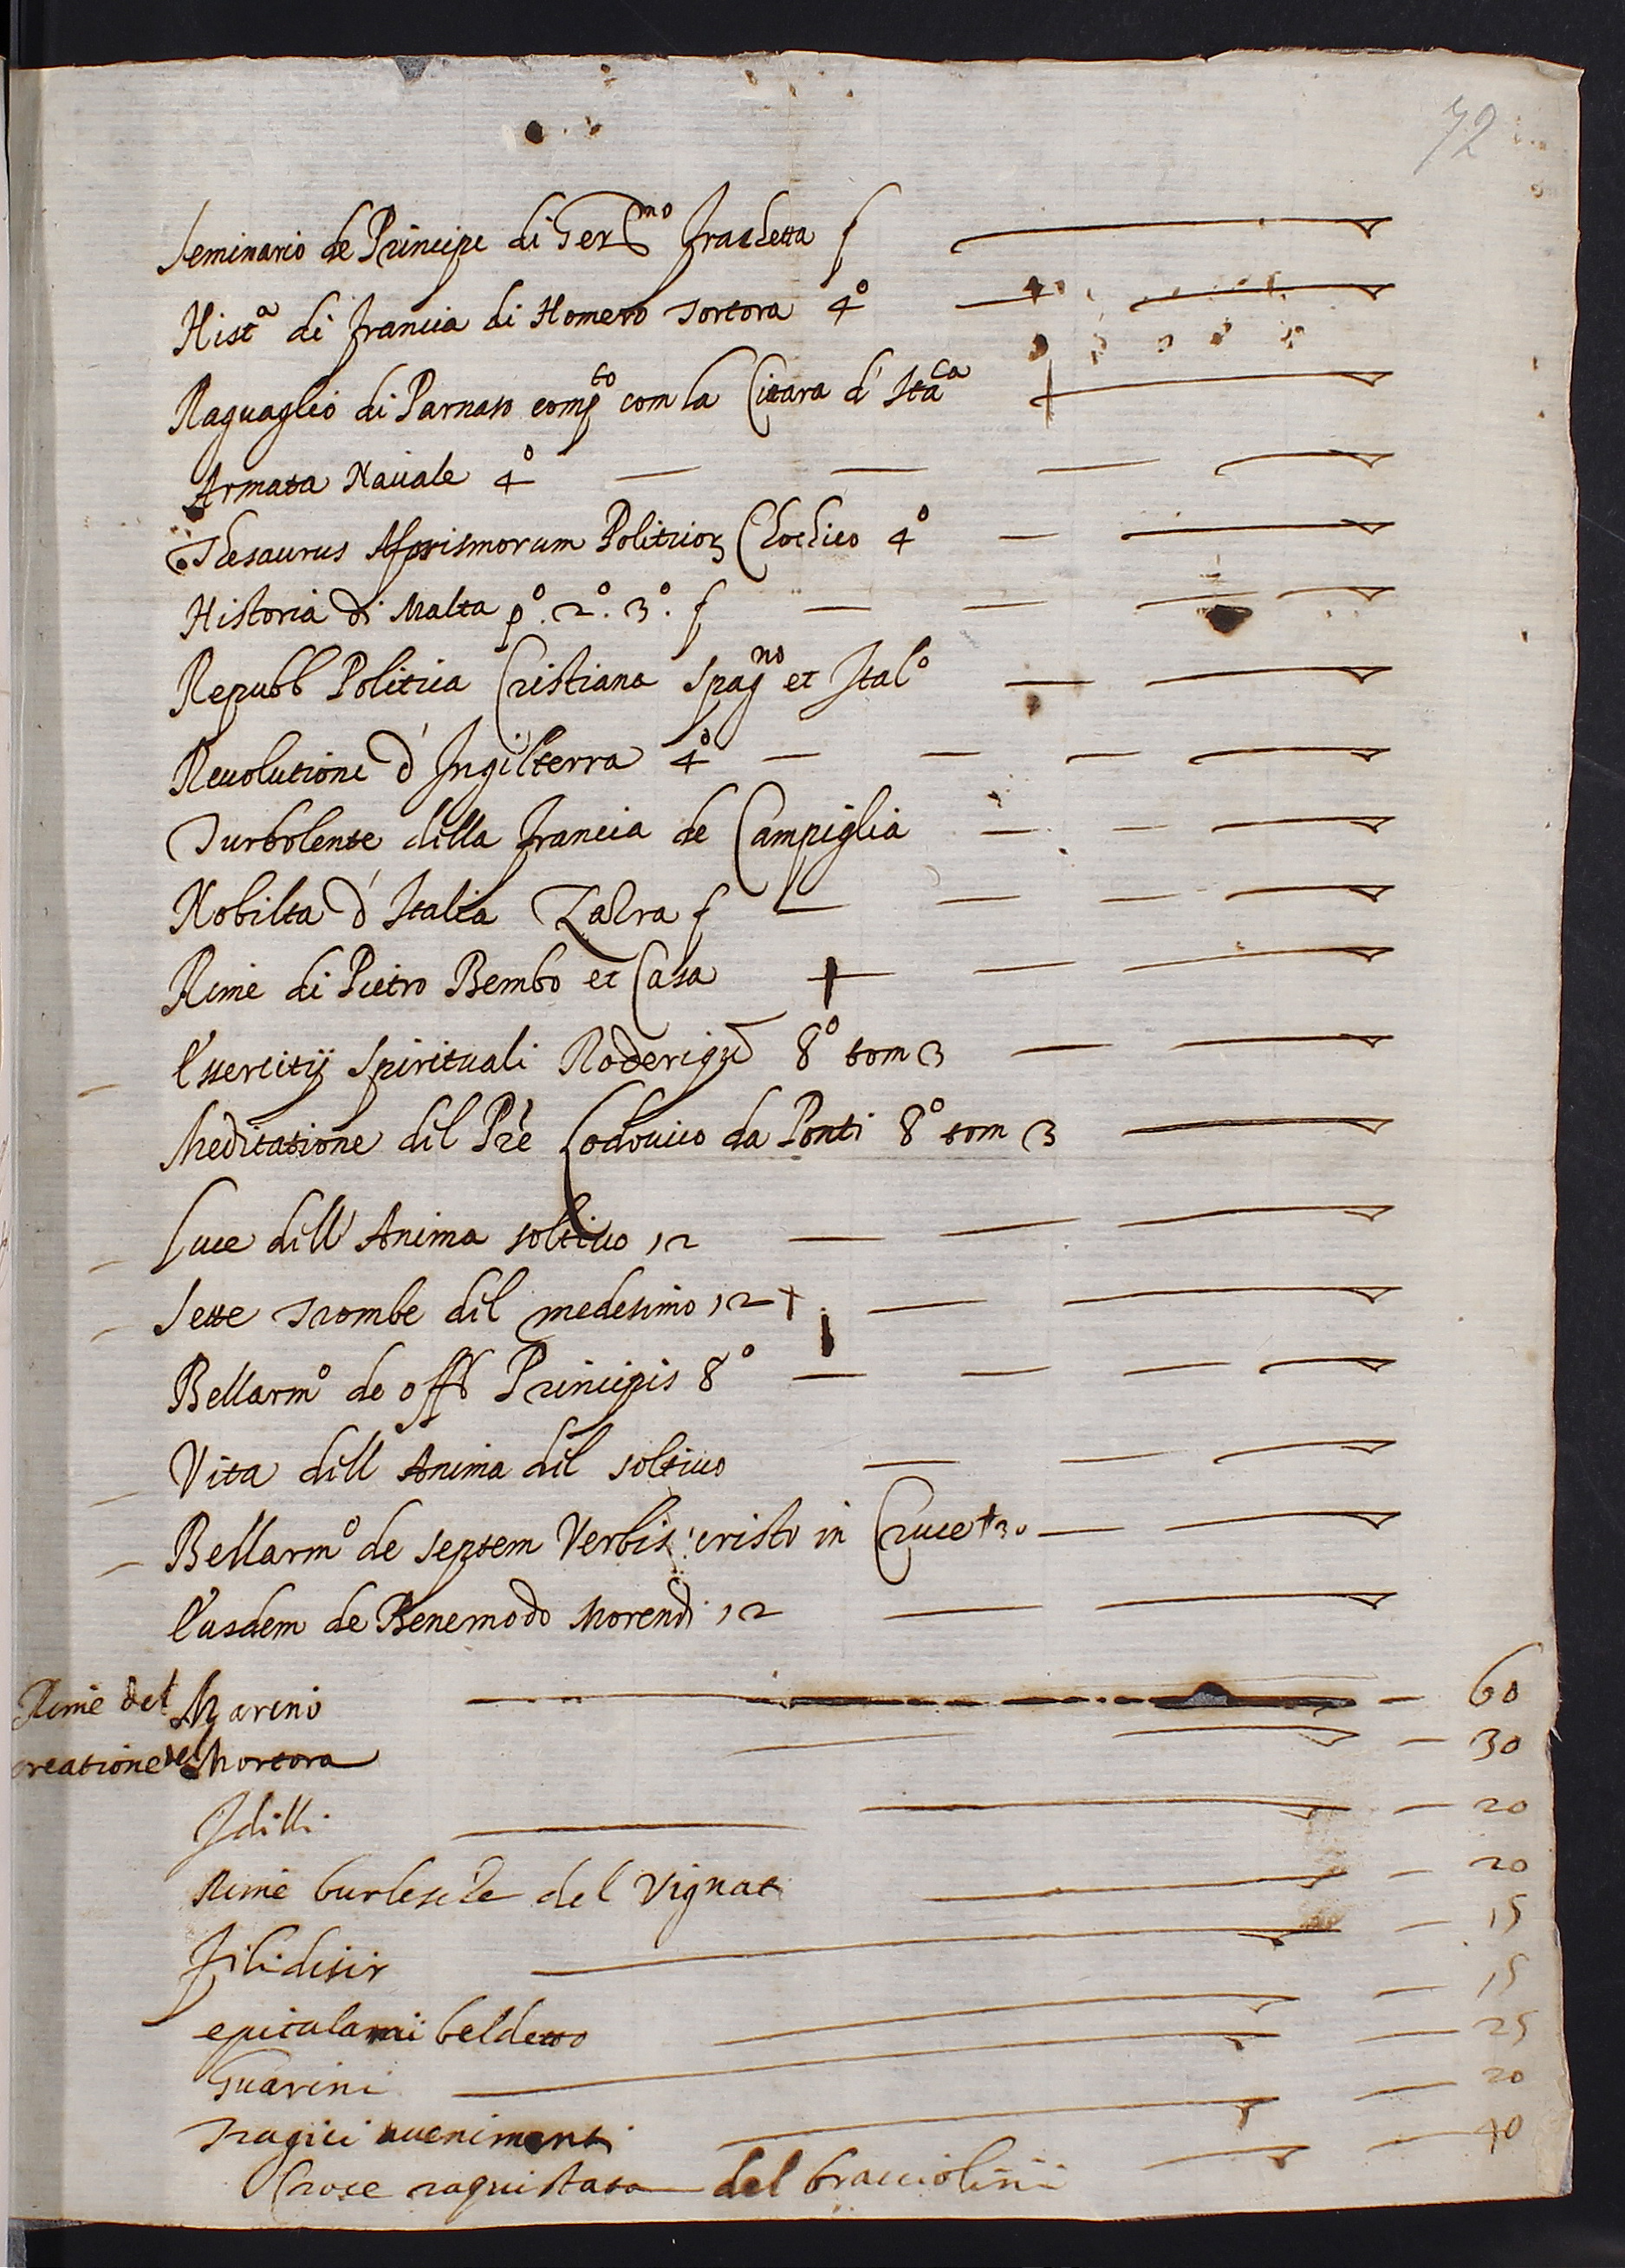 72
Seminario de Principe di Ger.mo frachetta f
Hist.a di francia di Homero Tortora 4°
Raguaglio di Parnaso comp.to com la Citara d'
Armata Navale 4°
Thesaurus Aforismorum Politicor Chochieo 4°
Historia di Malta p°. 2°. 3°. f
Repubb Politica Cristiana Spag.no et Ital°
Revolutione d' Ingilterra 4°
Turbolente dilla francia de Campiglia
Nobilta d' Italia Zazra f
Rime di Pietro Bembo et Casa +
l'ssercitij Spirituali Roderigu 8° tom 3
Meditatione dil Pre Lodovico da Ponti 8° tom 3
Luce dill' Anima soltivo 12
Sette Trombe dil medesimo 12 +
Bellarm° de off Principis 8°
Vita dill Anima dil soltivo
Bellarm° de septem Verbis cristo in Cruce
de Benemodo Morendi 12
Rime del Marino 60
creatione del Mortora 30
Idilli 20
Rime burlesche del Vignat 20
filidisir 15
epitalami 15
Guarini 25
Tragici avenimenti 20
Croce raquistata del bracciolini 40